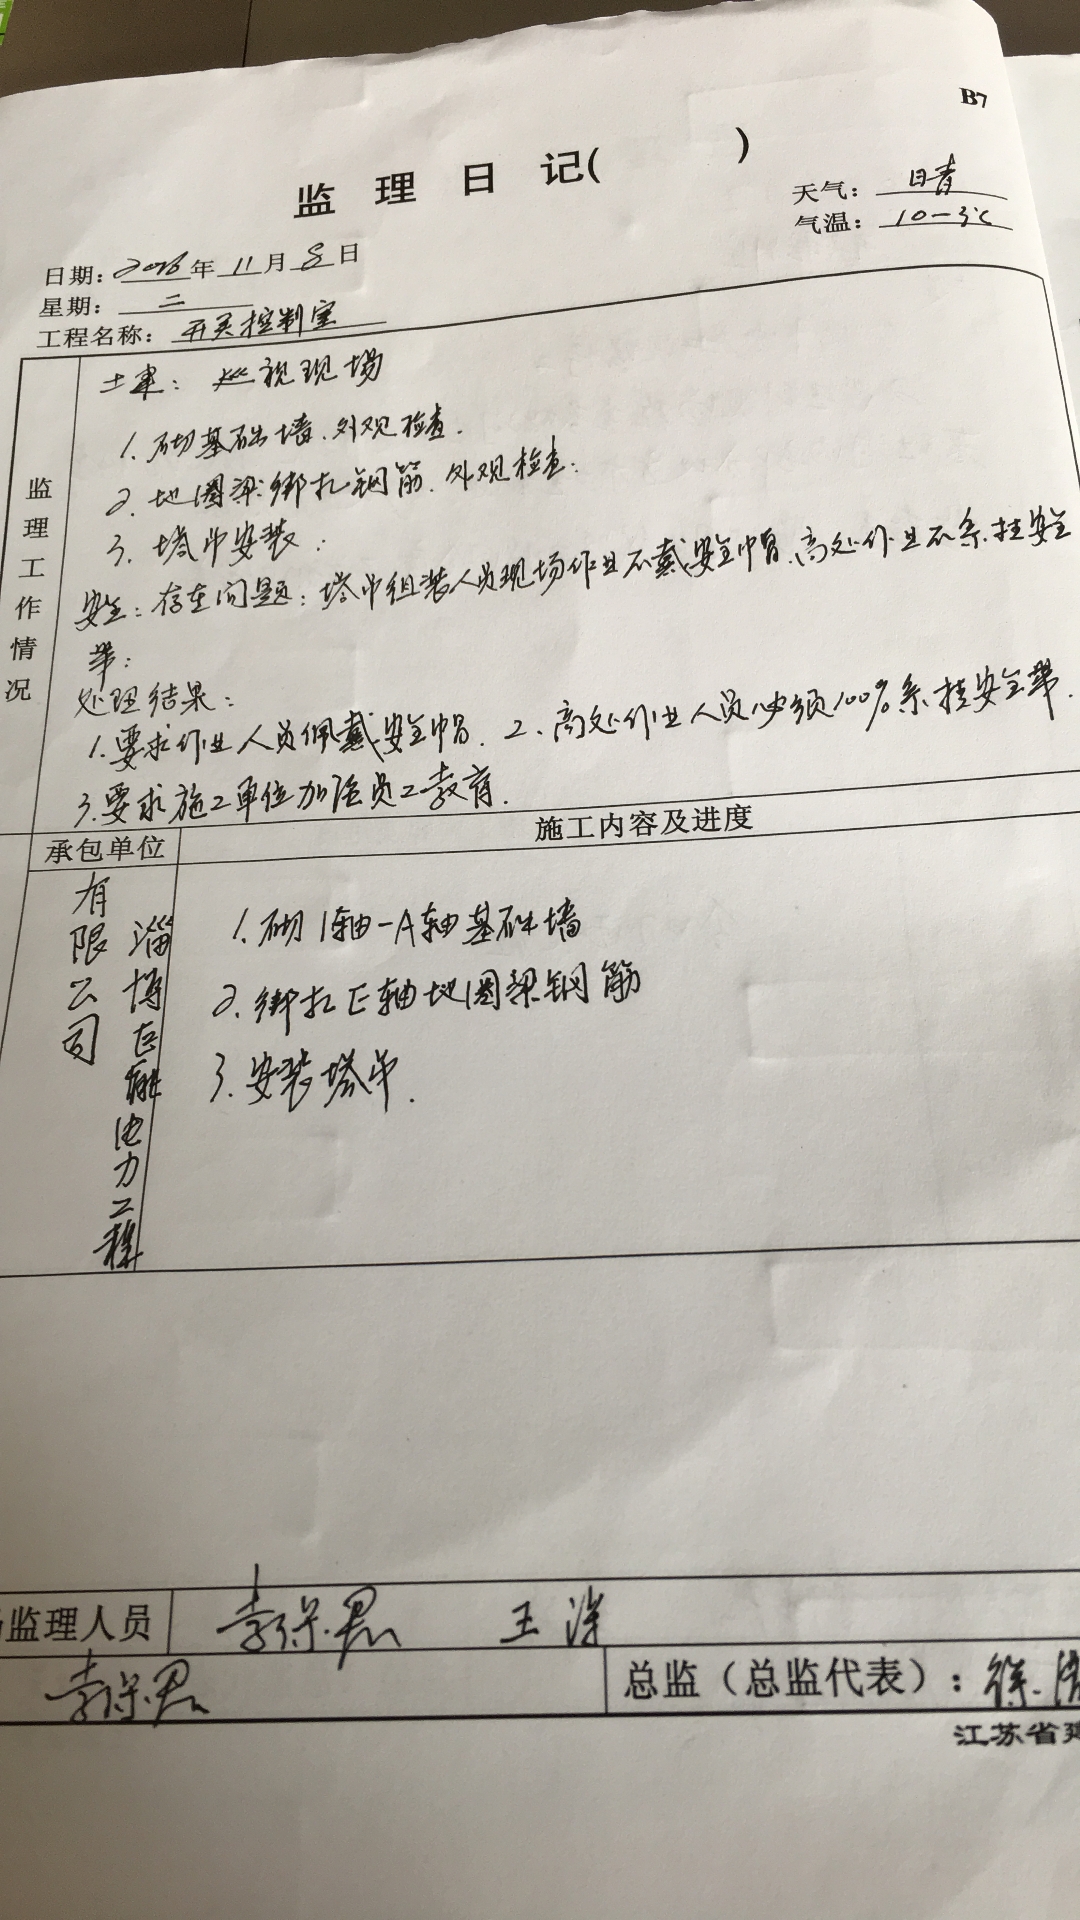 B7
监理日记( )
天气: 晴
气温: 10-3℃
日期: 2016年11月8日
星期: 二
工程名称: 开关控制室
监理工作情况
土建: 巡视现场
1. 砌基础墙、外观检查.
2. 地圈梁绑扎钢筋、外观检查:
3. 塔吊安装:
安全: 存在问题: 塔吊组装人员现场作业不戴安全帽、高处作业不系挂安全
带:
处理结果:
1. 要求作业人员佩戴安全帽. 2、高处作业人员必须100%系挂安全带.
3. 要求施工单位加强员工教育.
承包单位
施工内容及进度
淄博巨能电力工程
有限公司
1. 砌1轴-A轴基础墙
2. 绑扎E轴地圈梁钢筋
3. 安装塔吊.
监理人员
李保君 王洋
李保君
总监（总监代表）: 徐
江苏省